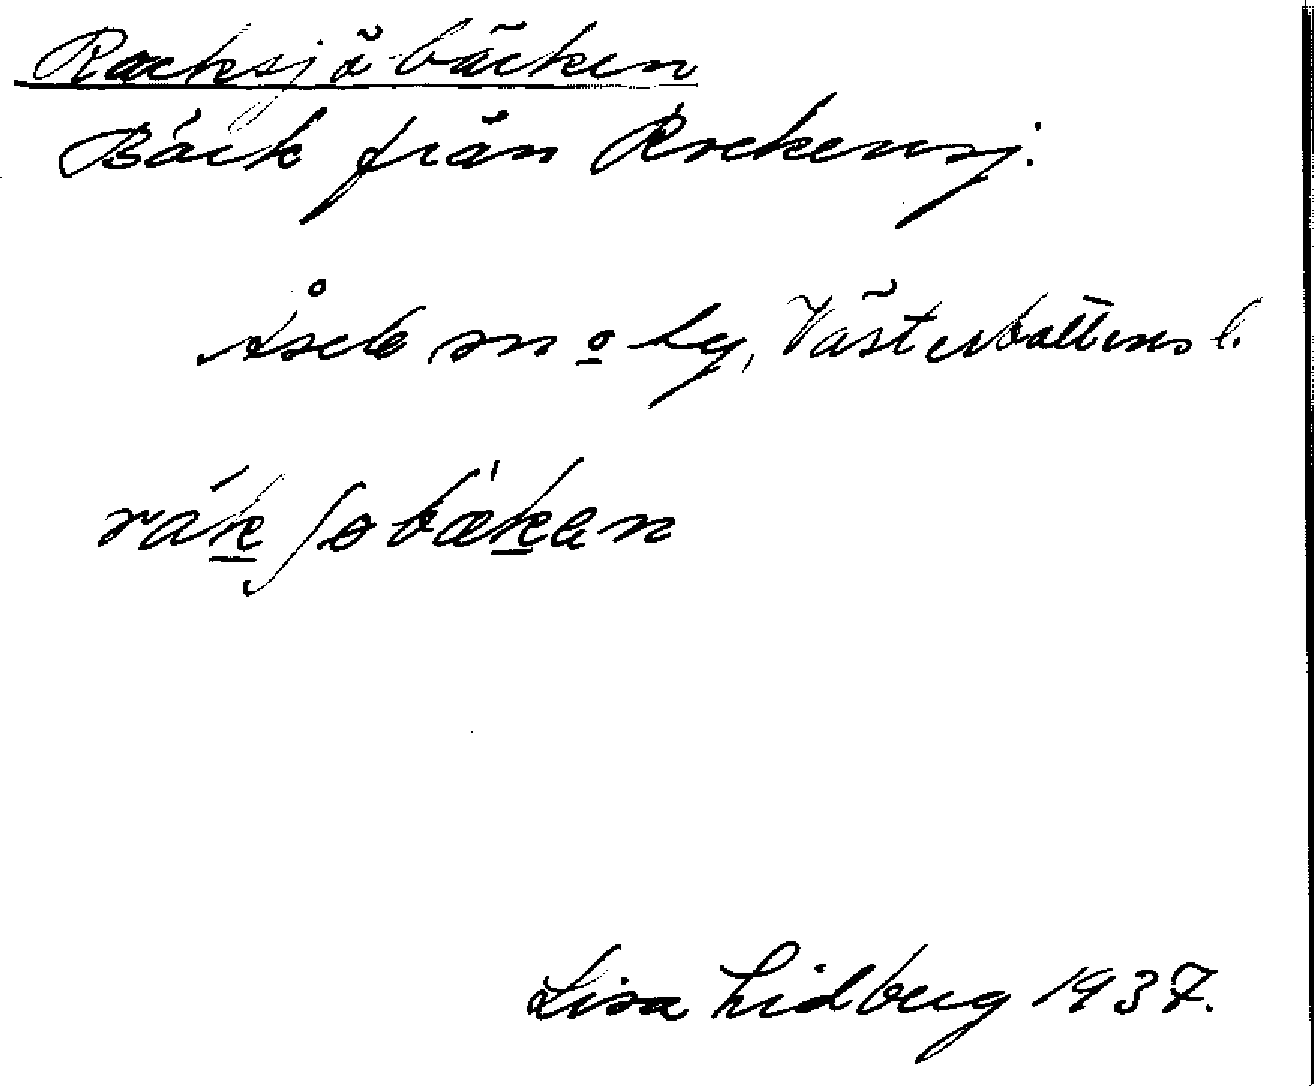 Racksjöbäcken
Bäck från Rackensj.
Åsele sn o Ly, Västerbottens l.
rákʃobækan
Lisa Lidberg 1937.